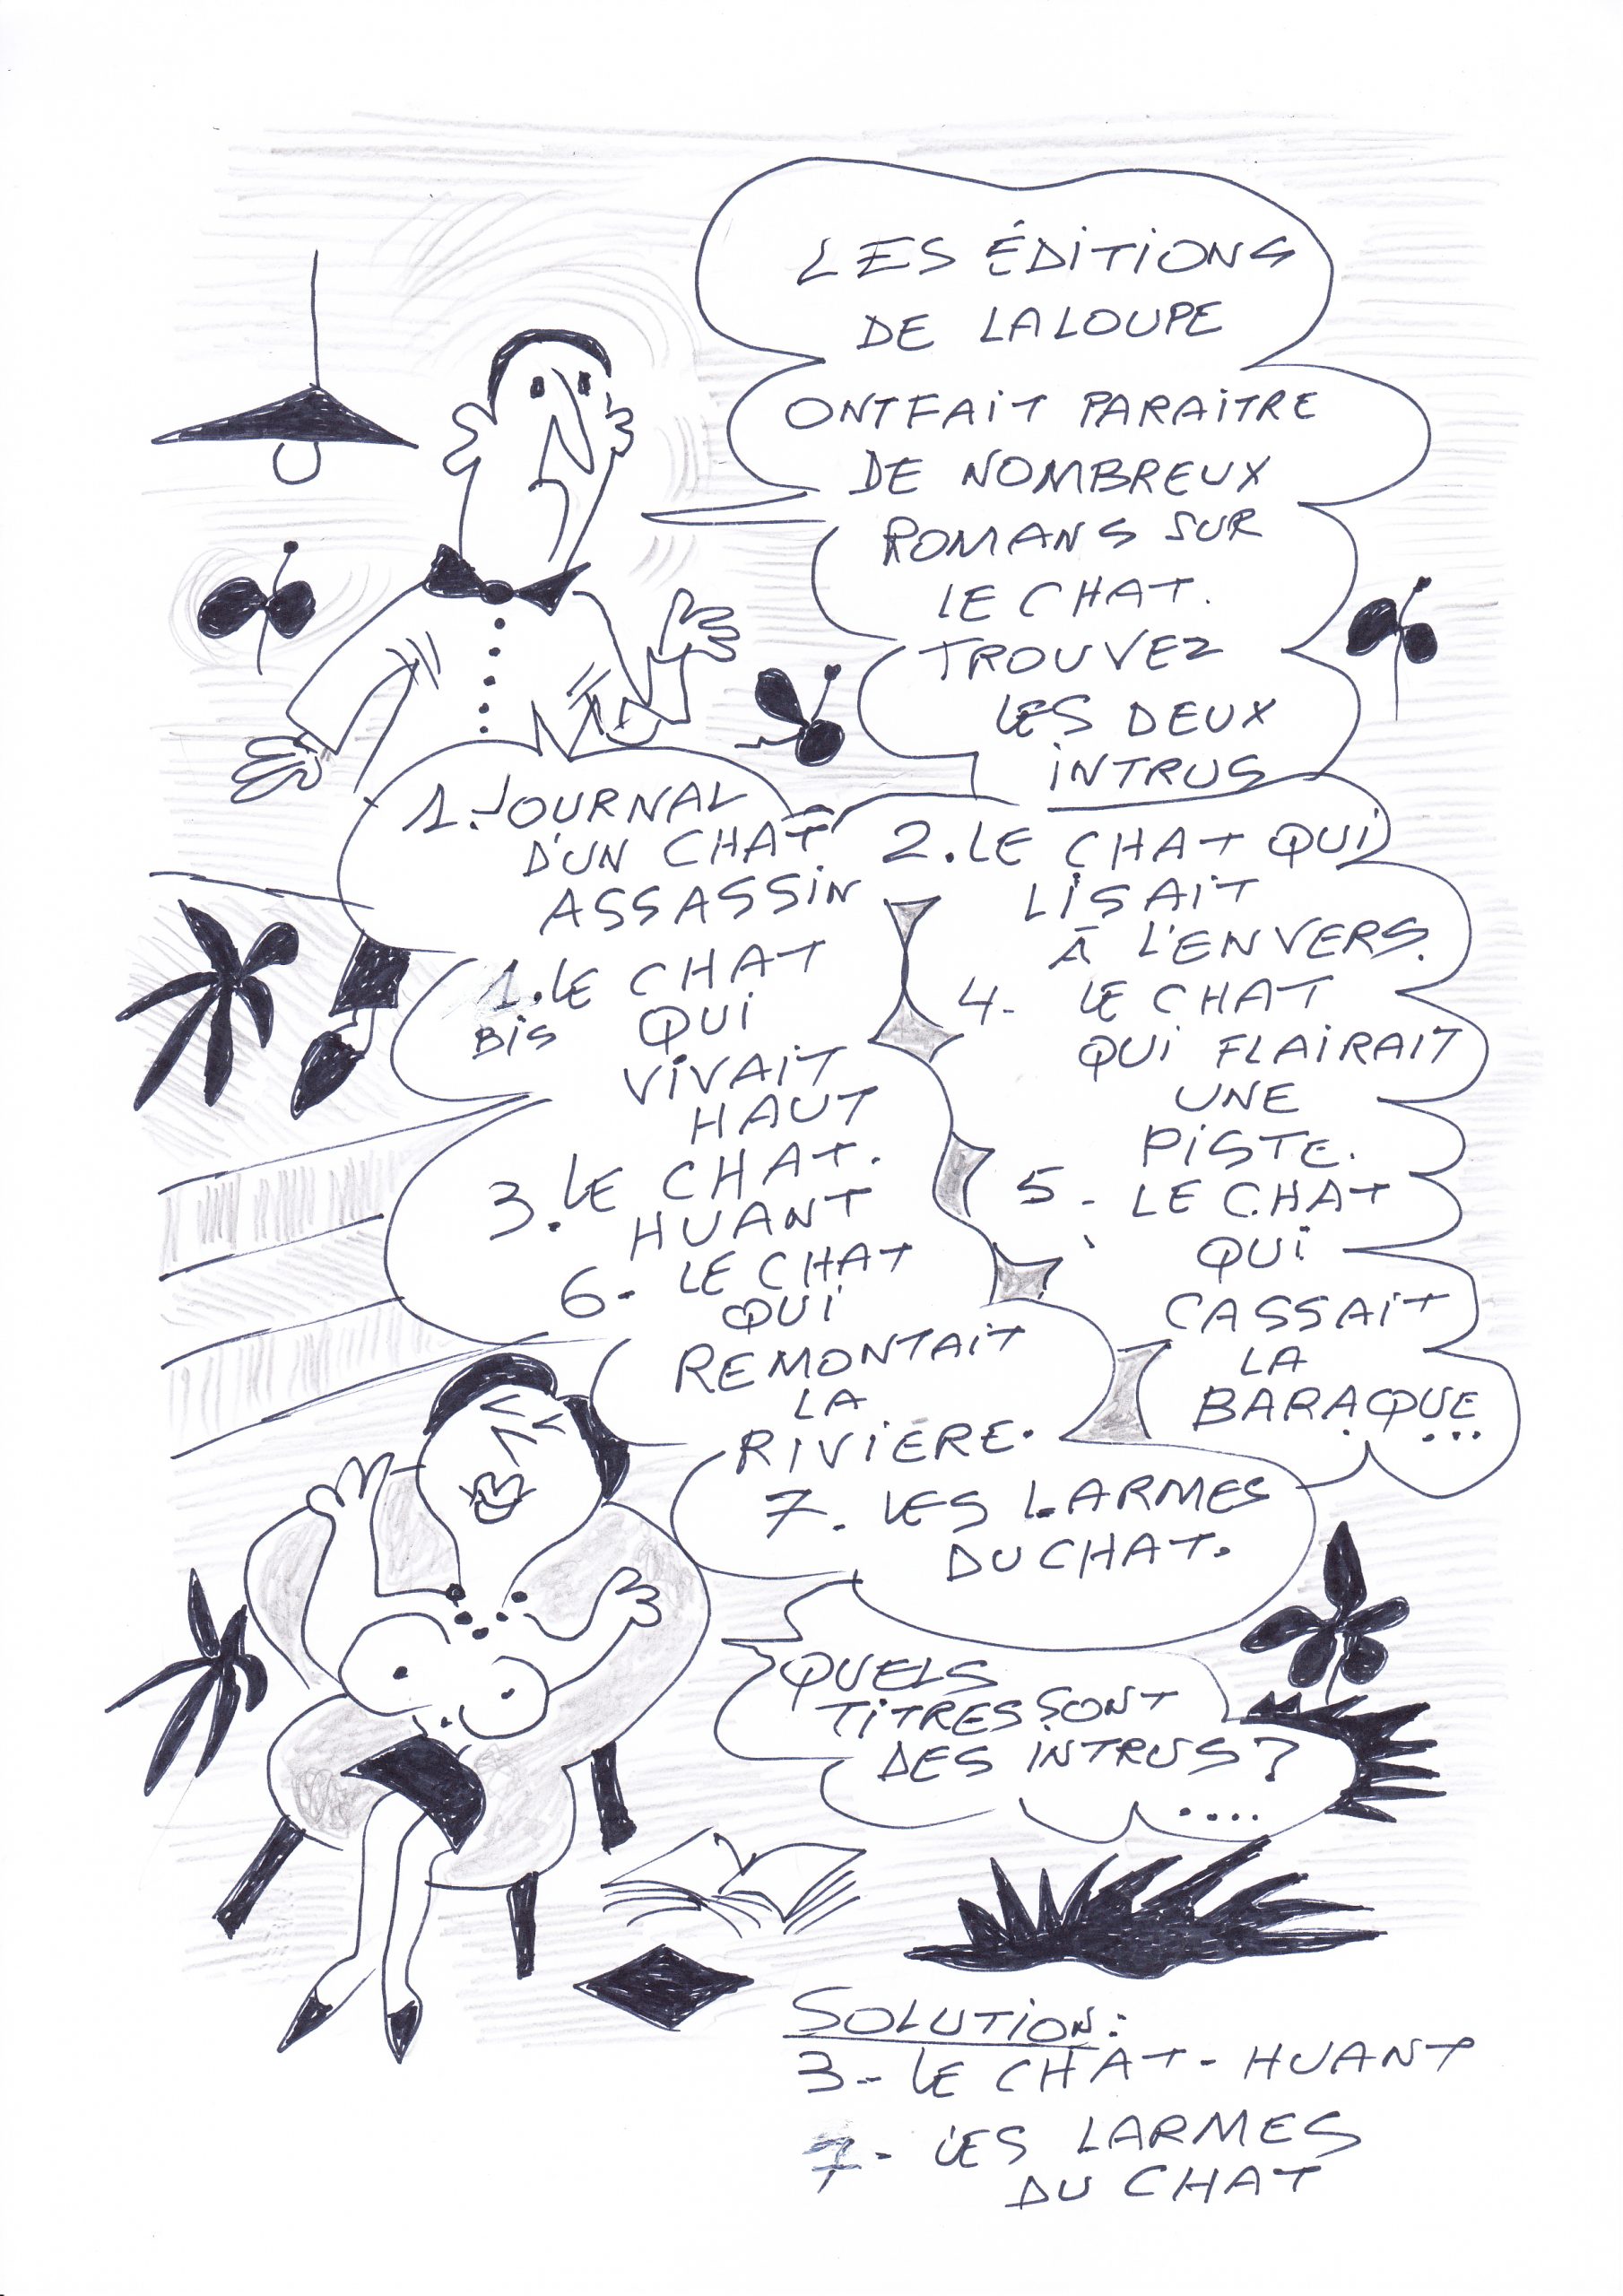 LES ÉDITIONS
DE LA LOUPE
ONT FAIT PARAITRE
DE NOMBREUX
ROMANS SUR
LE CHAT.
TROUVEZ
LES DEUX
INTRUS
1. JOURNAL
D'UN CHAT
ASSASSIN
2. LE CHAT QUI
LISAIT
À L'ENVERS.
1. LE CHAT
BIS QUI
VIVAIT
HAUT
3. LE CHAT.
HUANT
4- LE CHAT
QUI FLAIRAIT
UNE
PISTE.
5- LE CHAT
QUI
CASSAIT
LA
BARAQUE...
6- LE CHAT
QUI
REMONTAIT
LA
RIVIÈRE.
7- LES LARMES
DU CHAT.
QUELS
TITRES SONT
DES INTRUS?
....
SOLUTION:
3- LE CHAT-HUANT
7- LES LARMES
DU CHAT